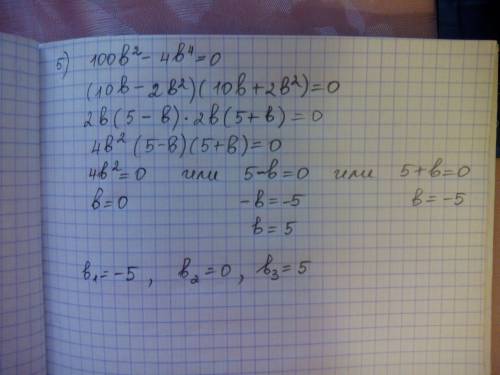 5) 100в² - 4в⁴ = 0
(10в - 2в²)(10в + 2в²) = 0
2в(5 - в) · 2в(5 + в) = 0
4в² (5-в)(5+в) = 0
4в² = 0 или 5-в=0 или 5+в=0
в=0 -в=-5 в=-5
в=5
в₁=-5, в₂=0, в₃=5